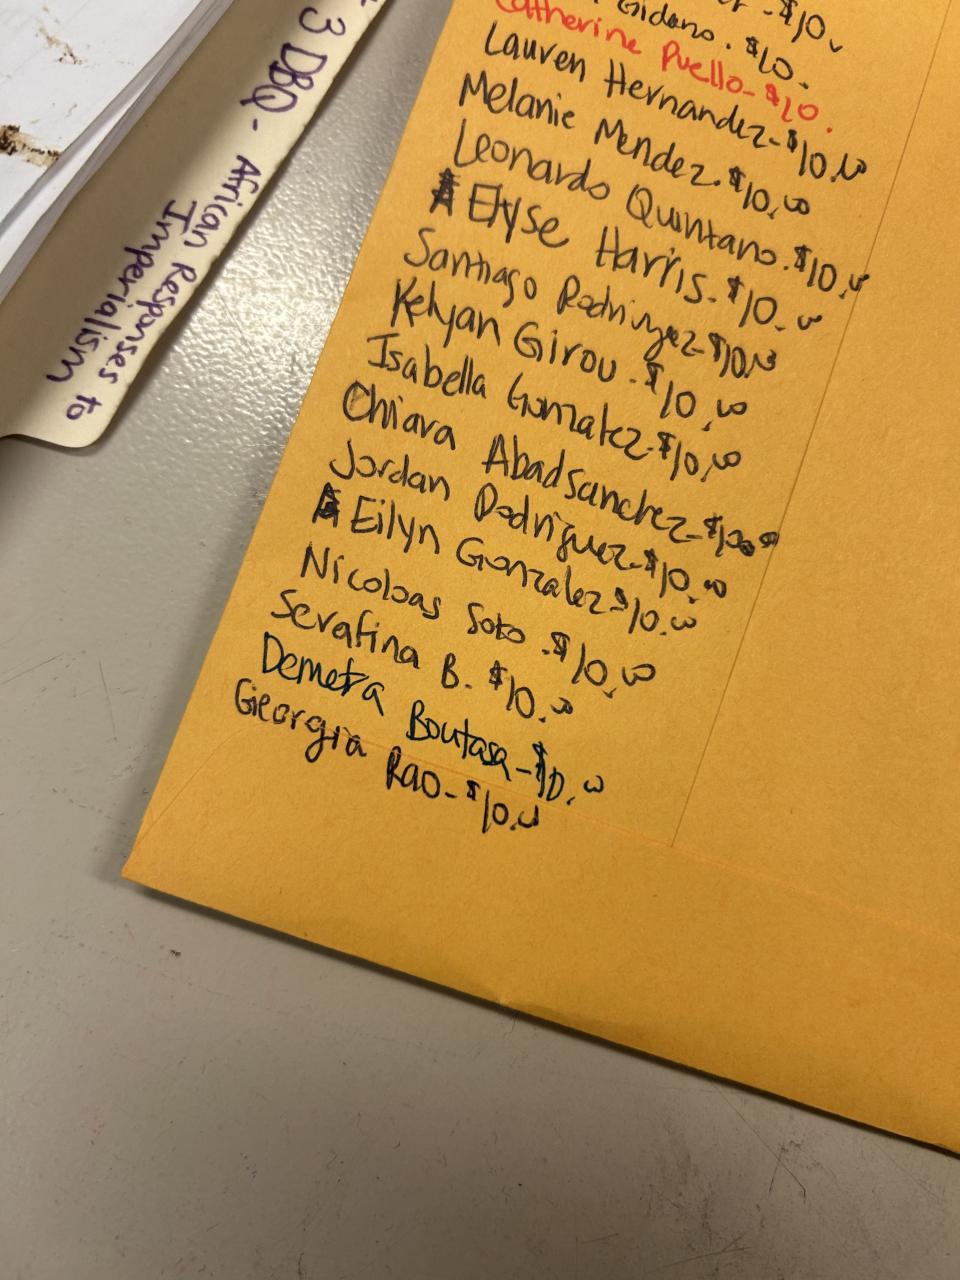 $10.
Gidano. $10.
Catherine Puello- $20.
Lauren Hernandez- $10.00
Melanie Mendez. $10.00
Leonardo Quintano. $10.00
Elyse Harris. $10.00
Santiago Rodriguez- $10.00
Kelyan Girou. $10.00
Isabella Gonzalez- $10.00
Chiara Abadsanchez- $10.00
Jordan Rodriguez- $10.00
Eilyn Gonzalez- $10.00
Nicoloas Soto. $10.00
Serafina B. $10.00
Demetra Boutasa- $10.00
Georgia Rao- $10.00
3 DBQ- African Responses to
Imperialism